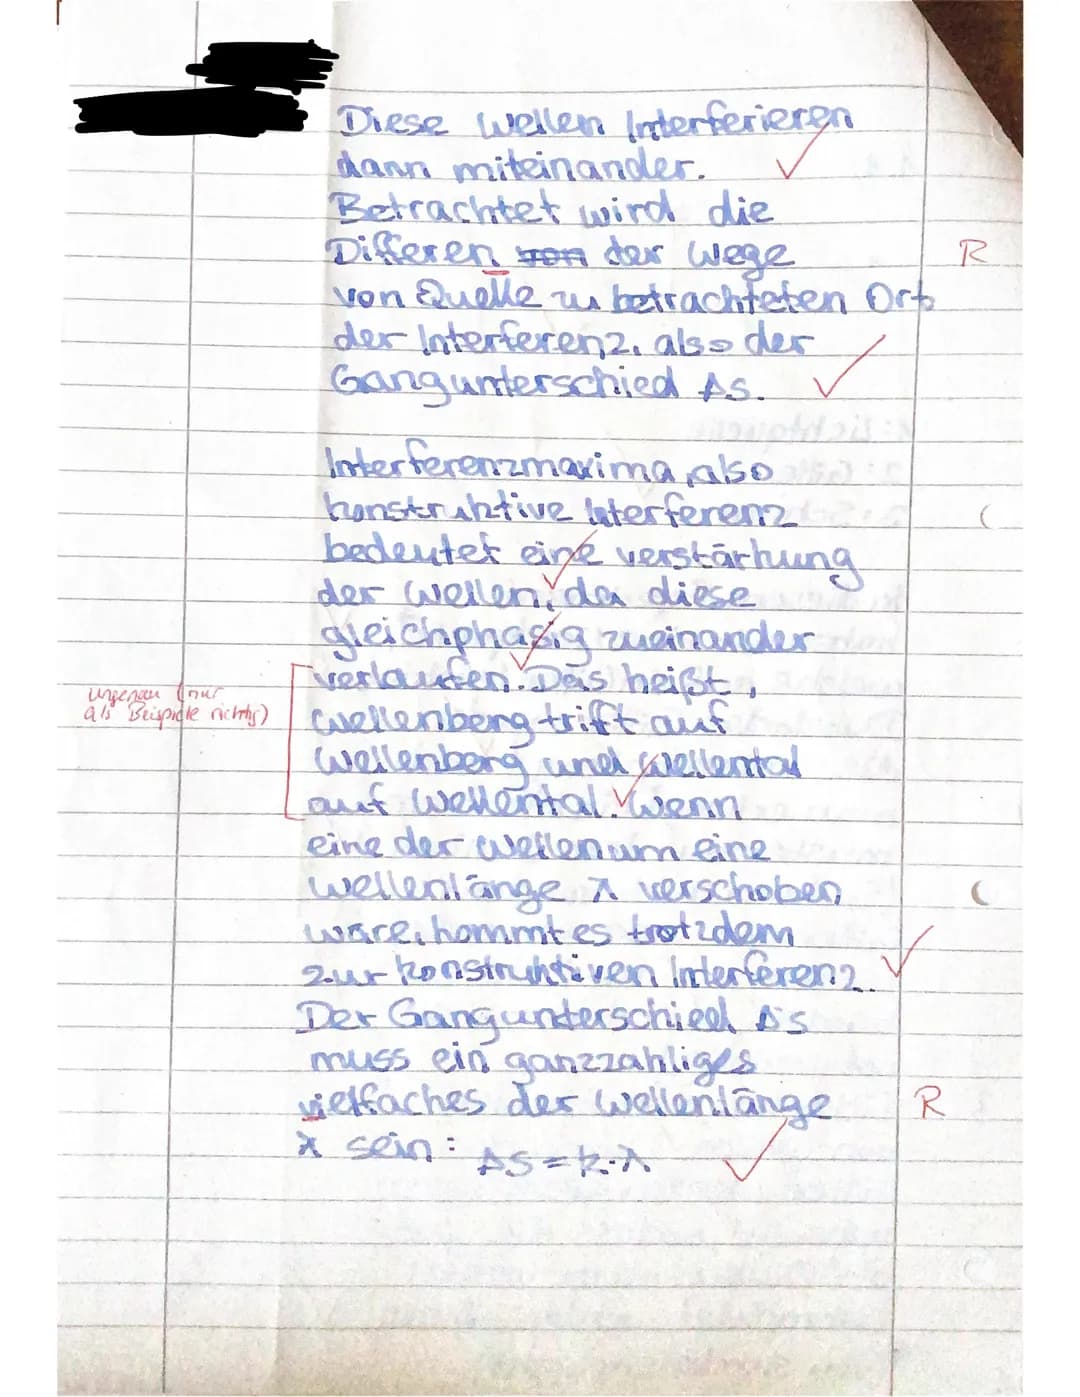 Diese Wellen Interferieren
dann miteinander.
Betrachtet wird die
Differen von der Wege
R
von Quelle zu betrachteten Ort
der Interferenz, also der
Gangunterschied Δs.
Interferenzmaxima, also
konstruktive Interferenz
bedeutet eine verstärkung
der Wellen, da diese
gleichphasig zueinander
verlaufen. Das heißt,
ungenau (nur
als Beispiele richtig)
Wellenberg trifft auf
Wellenberg und Wellental
auf Wellental. Wenn
eine der Wellen um eine
Wellenlänge λ verschoben
wäre, kommt es trotzdem
zur konstruktiven Interferenz.
Der Gangunterschied Δs
muss ein ganzzahliges
vielfaches der Wellenlänge
R
λ sein: Δs = k·λ